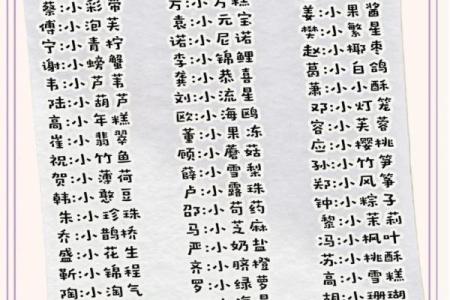 蔡:小彩带
傅:小泡芙
宁:小青柠
谢:小螃蟹
韦:小芦苇
陆:小葫芦
高:小年糕
崔:小翡翠
祝:小竹鱼
贺:小薄荷
韩:小憨豆
朱:小珍珠
乔:小鹊桥
盛:小花生
靳:小锦程
陶:小淘气
袁:小元宝
诺:小尼诺
李:小锦鲤
龚:小恭喜
刘:小流星
欧:小海鸥
董:小果冻
顾:小蘑菇
薛:小雪梨
卢:小露珠
邵:小芍药
马:小芝麻
严:小奶盐
齐:小脐橙
罗:小绿萝
姜:小果酱
樊:小繁星
赵:小椰枣
葛:小白鸽
萧:小酥
邓:小灯笼
容:小芙蓉
应:小樱桃
孙:小竹笋
郑:小风筝
钟:小粽子
黎:小茉莉
冯:小枫叶
苏:小桃酥
高:小雪糕
胡:小珊瑚